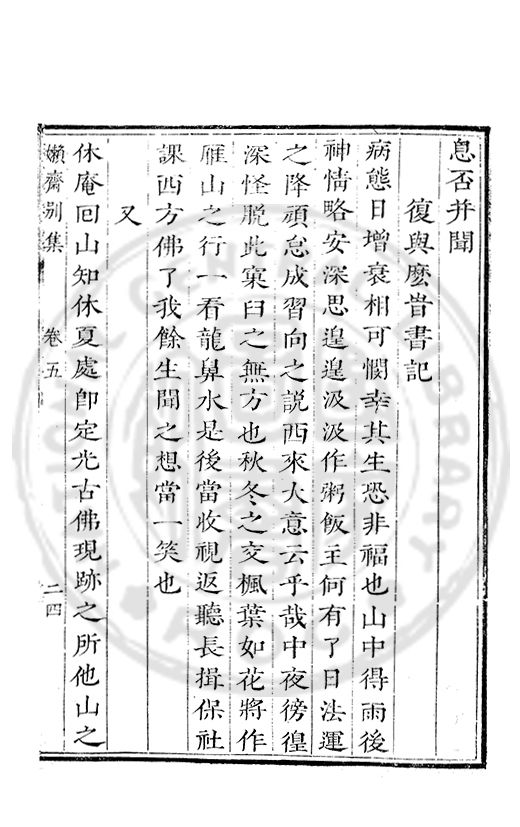 息否并聞
復與麼昔書記
病態日增衰相可憫幸其生恐非福也山中得雨後
神情略安深思遑遑汲汲作粥飯主何有了日法運
之降頑怠成習向之説西來大意云乎哉中夜徬徨
深怪脫此窠臼之無方也秋冬之交楓葉如花將作
雁山之行一看龍鼻水是後當收視返聽長揖保社
課西方佛了我餘生聞之想當一笑也
又
休庵囘山知休夏處卽定光古佛現跡之所他山之
嬾齋别集
卷五
二四